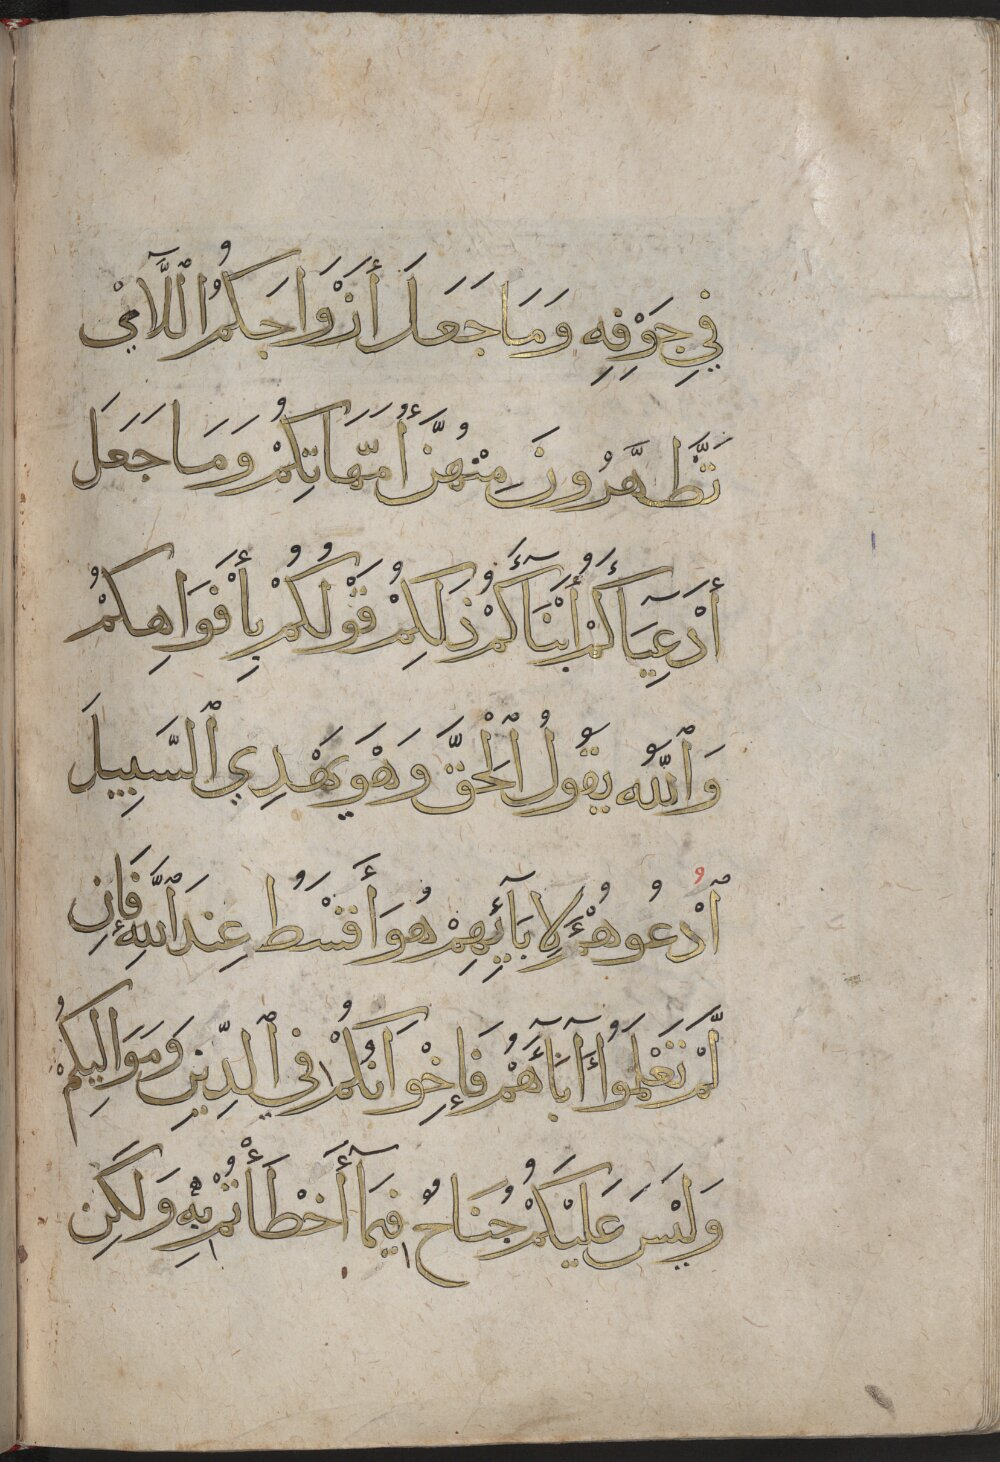 فِي جَوْفِهِ وَمَا جَعَلَ أَزْوَاجَكُمُ ٱللَّآيْ
تَظَّهَّرُونَ مِنْهُنَّ أُمَّهَاتِكُمْ وَمَا جَعَلَ
أَدْعِيَآءَكُمُ أَبْنَآءَكُمْ ذَلِكُمْ قَوْلُكُمْ بِأَفْوَاهِكُمْ
وَٱللَّهُ يَقُولُ ٱلْحَقَّ وَهْوَ يَهْدِي ٱلسَّبِيلَ
ٱدْعُوهُمْ لِآبَآئِهِمْ هُوَ أَقْسَطُ عِندَ ٱللَّهِ فَإِن
لَّمْ تَعْلَمُوا آبَآءَهُمْ فَإِخْوَانُكُمْ فِي ٱلدِّينِ وَمَوَالِيكُمْ
وَلَيْسَ عَلَيْكُمْ جُنَاحٌ فِيمَآ أَخْطَأْتُمْ بِهِ وَلَكِن